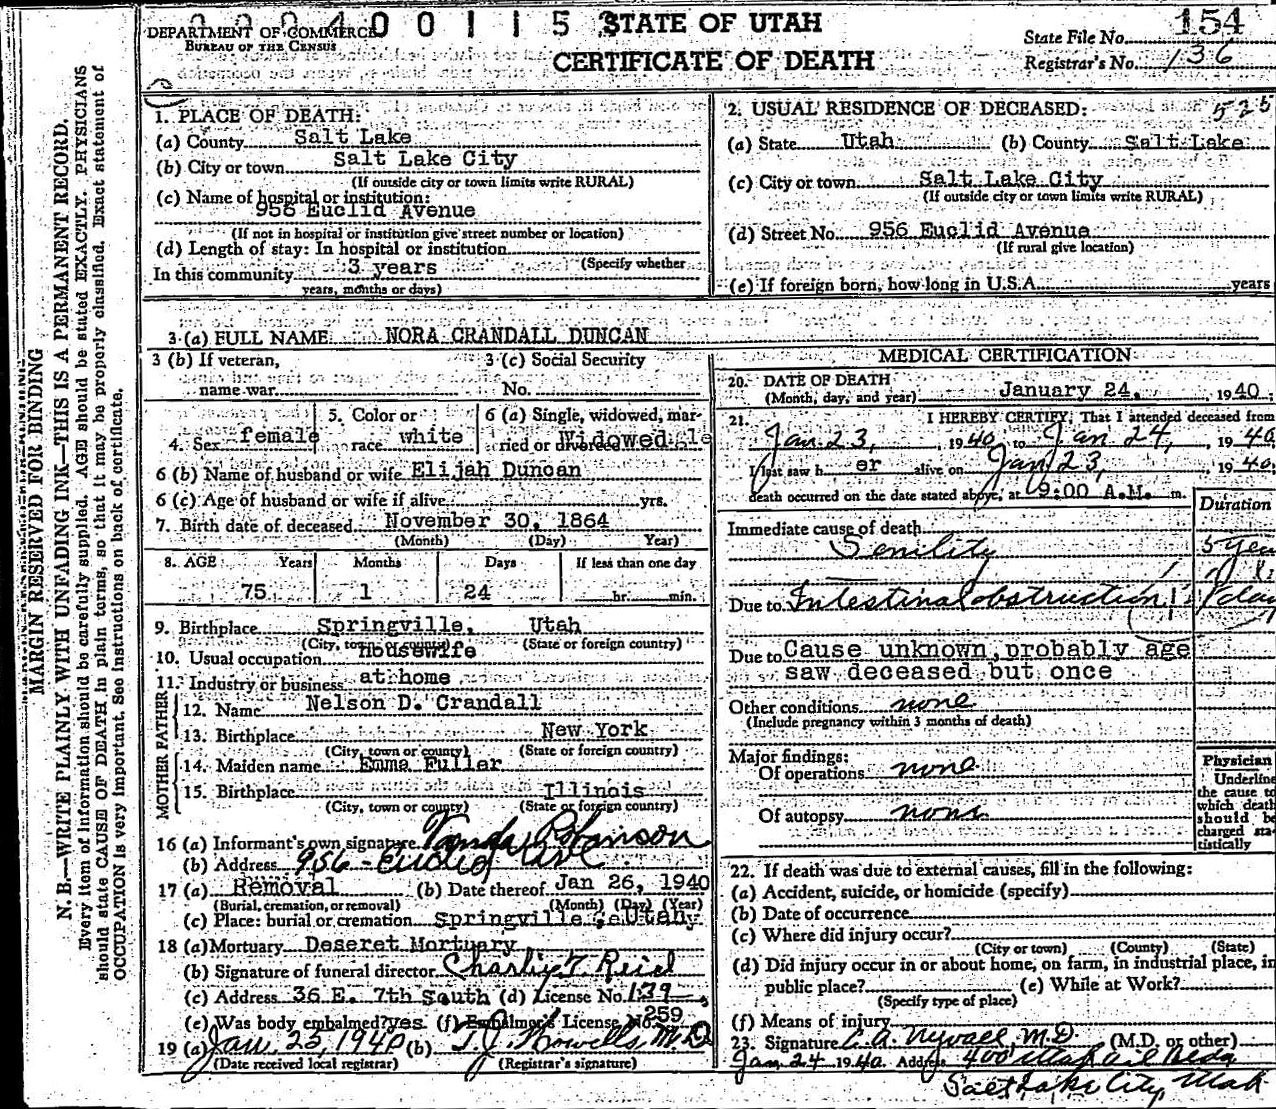 0 0 0 4 0 0 1 1 5 3
STATE OF UTAH
CERTIFICATE OF DEATH
DEPARTMENT OF COMMERCE
BUREAU OF THE CENSUS
State File No. 154
Registrar's No. 136
525
MARGIN RESERVED FOR BINDING
N. B.—WRITE PLAINLY WITH UNFADING INK—THIS IS A PERMANENT RECORD.
Every item of information should be carefully supplied. AGE should be stated EXACTLY. PHYSICIANS
should state CAUSE OF DEATH in plain terms, so that it may be properly classified. Exact statement of
OCCUPATION is very important. See instructions on back of certificate.
1. PLACE OF DEATH:
(a) County Salt Lake
(b) City or town Salt Lake City
(If outside city or town limits write RURAL)
(c) Name of hospital or institution:
956 Euclid Avenue
(If not in hospital or institution give street number or location)
(d) Length of stay: In hospital or institution
(Specify whether
In this community 3 years
years, months or days)
2. USUAL RESIDENCE OF DECEASED:
(a) State Utah (b) County Salt Lake
(c) City or town Salt Lake City
(If outside city or town limits write RURAL)
(d) Street No. 956 Euclid Avenue
(If rural give location)
(e) If foreign born, how long in U.S.A. years
3 (a) FULL NAME NORA CRANDALL DUNCAN
3 (b) If veteran,
name war
3 (c) Social Security
No.
4. Sex female
5. Color or
race white
6 (a) Single, widowed, mar-
ried or divorced Widowed
6 (b) Name of husband or wife Elijah Duncan
6 (c) Age of husband or wife if alive yrs.
7. Birth date of deceased November 30, 1864
(Month) (Day) Year)
8. AGE Years Months Days If less than one day
75 1 24 hr. min.
9. Birthplace Springville, Utah
(City, town or county) (State or foreign country)
10. Usual occupation Housewife
11. Industry or business at home
FATHER
12. Name Nelson D. Crandall
13. Birthplace New York
(City, town or county) (State or foreign country)
MOTHER
14. Maiden name Emma Fuller
15. Birthplace Illinois
(City, town or county) (State or foreign country)
16 (a) Informant's own signature
(b) Address 956 - Euclid Ave.
17 (a) Removal (b) Date thereof Jan 26, 1940
(Burial, cremation, or removal) (Month) (Day) (Year)
(c) Place: burial or cremation Springville Utah
18 (a) Mortuary Deseret Mortuary
(b) Signature of funeral director Charlie T. Reid
(c) Address 36 E. 7th South (d) License No. 139
(e) Was body embalmed? yes (f) Embalmer's License No. 259
19 (a) Jan. 25, 1940 (b) T. J. Howells, M.D.
(Date received local registrar) (Registrar's signature)
MEDICAL CERTIFICATION
20. DATE OF DEATH
(Month, day, and year) January 24, 1940
21. I HEREBY CERTIFY, That I attended deceased from
Jan 23, 1940 to Jan 24, 1940
I last saw h er alive on Jan 23, 1940
death occurred on the date stated above, at 9:00 A.M. m.
Duration
Immediate cause of death
Senility 5 year
Due to Intestinal obstruction
Due to Cause unknown, probably age
saw deceased but once
Other conditions none
(Include pregnancy within 3 months of death)
Major findings:
Of operations none
Of autopsy none
Physician
Underline
the cause to
which death
should be
charged sta-
tistically
22. If death was due to external causes, fill in the following:
(a) Accident, suicide, or homicide (specify)
(b) Date of occurrence
(c) Where did injury occur?
(City or town) (County) (State)
(d) Did injury occur in or about home, on farm, in industrial place, in
public place? (e) While at Work?
(Specify type of place)
(f) Means of injury
23. Signature M.D. (M.D. or other)
Jan 24 1940 Address 400
Salt Lake City, Utah